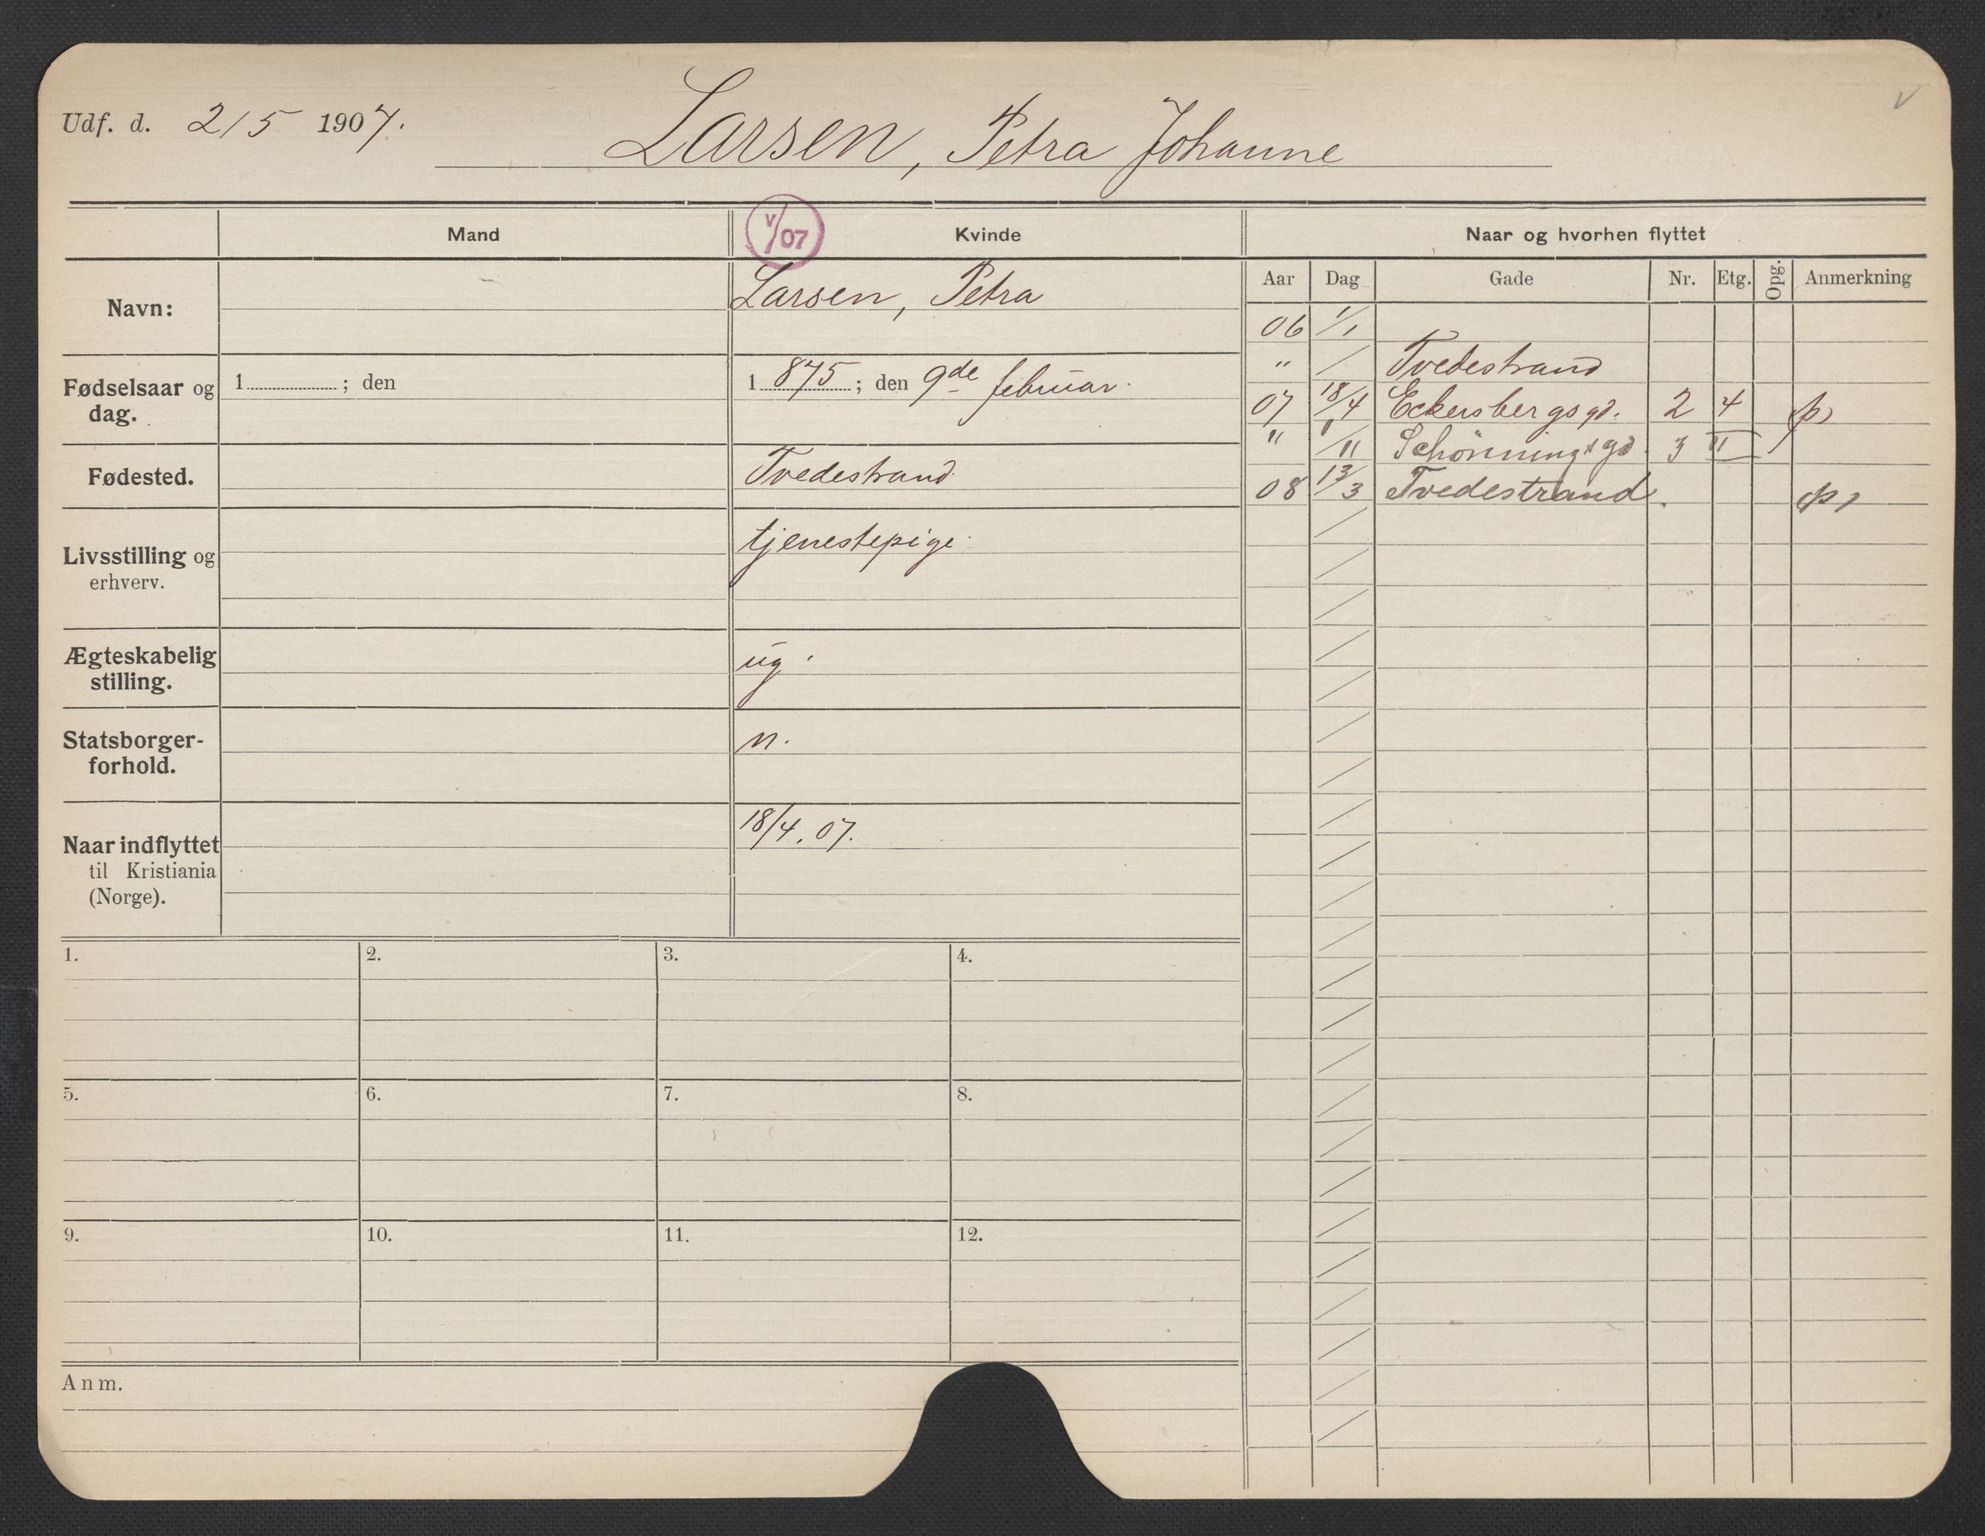 Udf. d. 2/5 1907. Larsen, Petra Johanne
V
Mand
V/07
Kvinde
Naar og hvorhen flyttet
Aar Dag Gade Nr. Etg. Opg. Anmerkning
Navn: Larsen, Petra
Fødselsaar og dag.
1 ; den
1 875 ; den 9de februar.
Fødested. Tvedestrand
Livsstilling og erhverv.
tjenestepige.
Ægteskabelig stilling.
ug.
Statsborgerforhold.
n.
Naar indflyttet
til Kristiania
(Norge).
18/4. 07.
06 1/1
" / Tvedestrand
07 18/4 Eckersbergsgd. 2 4 p)
" /11 Schønningsgd. 3 II
08 13/3 Tvedestrand. p)
1. 2. 3. 4.
5. 6. 7. 8.
9. 10. 11. 12.
Anm.